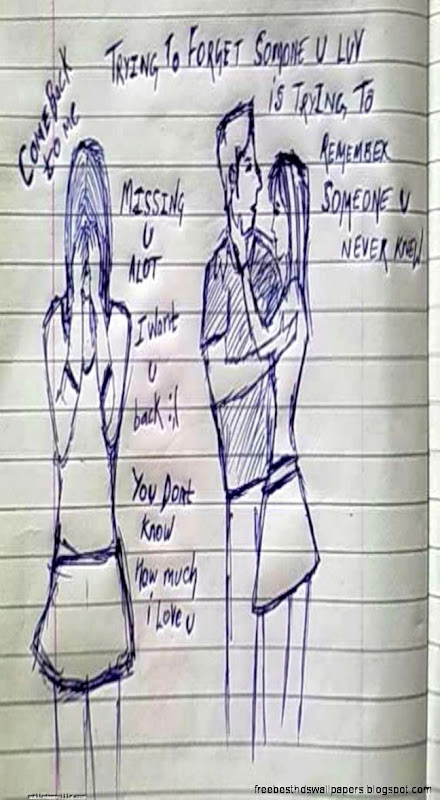 TRYING TO FORGET SOMONE U LUV
iS TRYING TO
REMEMBER
SOMEONE U
NEVER KNEW
COME BACK
to ME
MISSING
U
ALOT
I Want
U
back :(
YOU DONt
KNOW
How much
i LOVE U
freebesthdswallpapers.blogspot.com